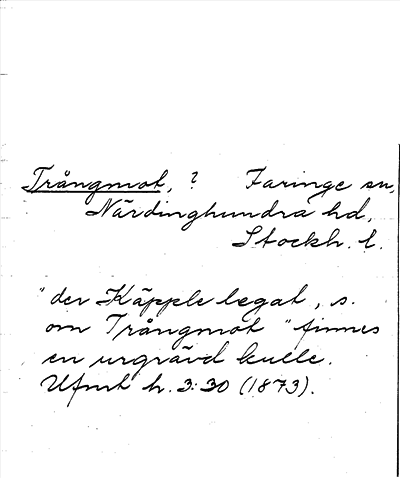 Trångmot, ? Faringe sn,
Närdinghundra hd,
Stockh. l.
"der Käpple legat, s.
om Trångmot" finnes
en urgrävd kulle.
Ufmt h. 3:30 (1873).